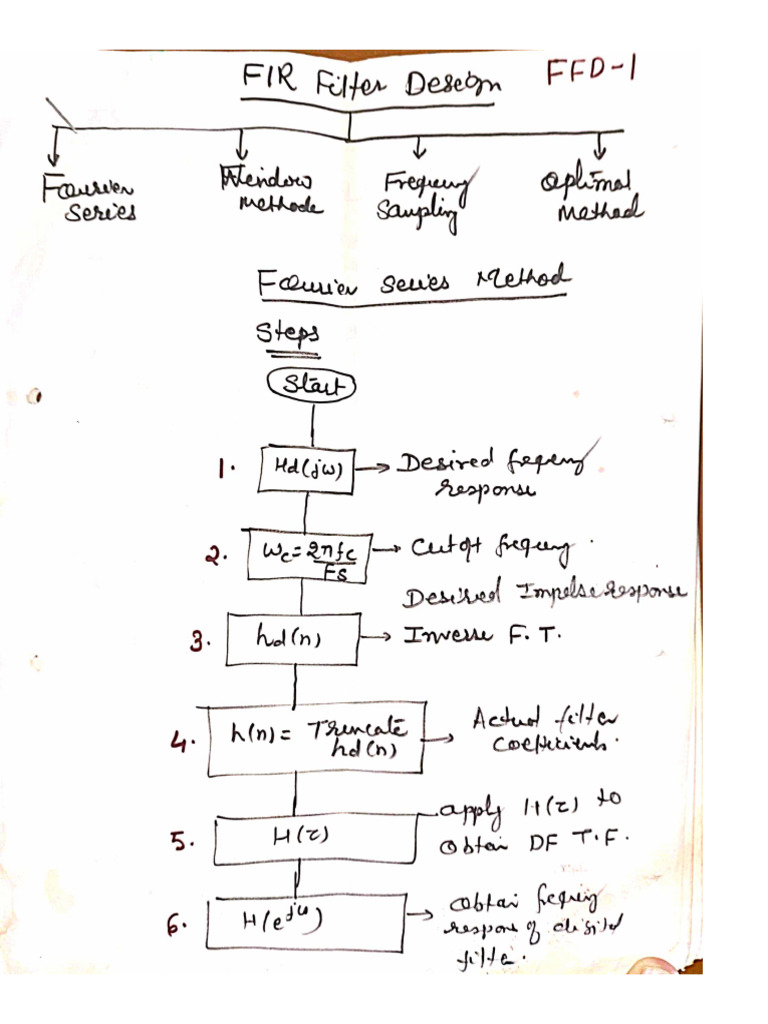 FIR Filter Design FFD-1
Fourier Window Frequency Optimal
Series Methode Sampling Method
Fourier Series Method
Steps
Start
1. Hd(jω) → Desired frequency
response
2. ωc = 2πfc → Cutoff frequency.
Fs
Desired Impulse response
3. hd(n) → Inverse F.T.
4. h(n) = Truncate → Actual filter
hd(n) coefficients.
5. H(z) apply H(z) to
obtain DF T.F.
6. H(e^jω) → obtain frequency
response of digital
filter.